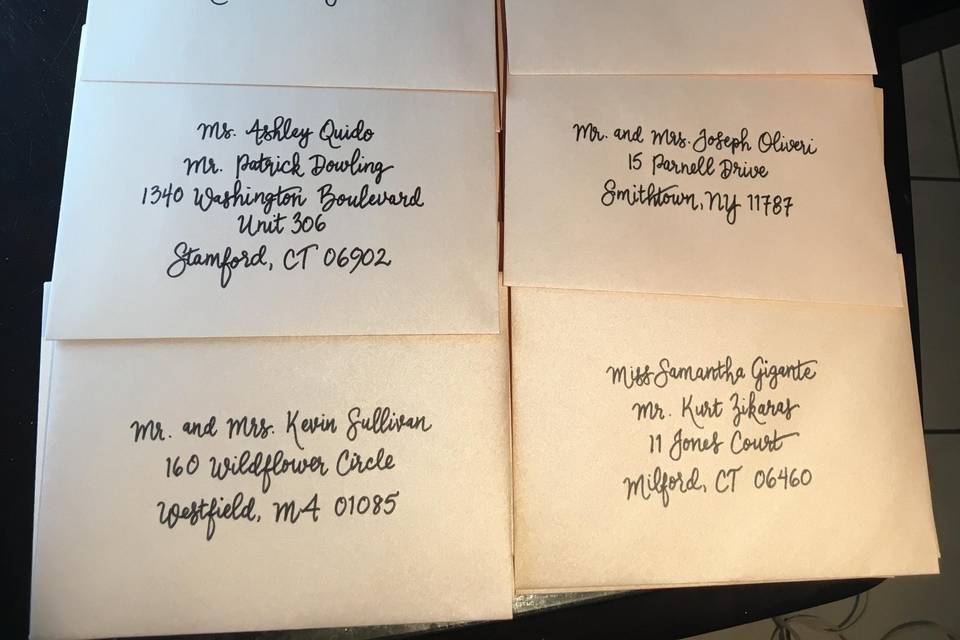 Ms. Ashley Quido
Mr. Patrick Dowling
1340 Washington Boulevard
Unit 306
Stamford, CT 06902
Mr. and Mrs. Joseph Oliveri
15 Parnell Drive
Smithtown, NY 11787
Mr. and Mrs. Kevin Sullivan
160 Wildflower Circle
Westfield, MA 01085
Miss Samantha Gigante
Mr. Kurt Zikaras
11 Jones Court
Milford, CT 06460